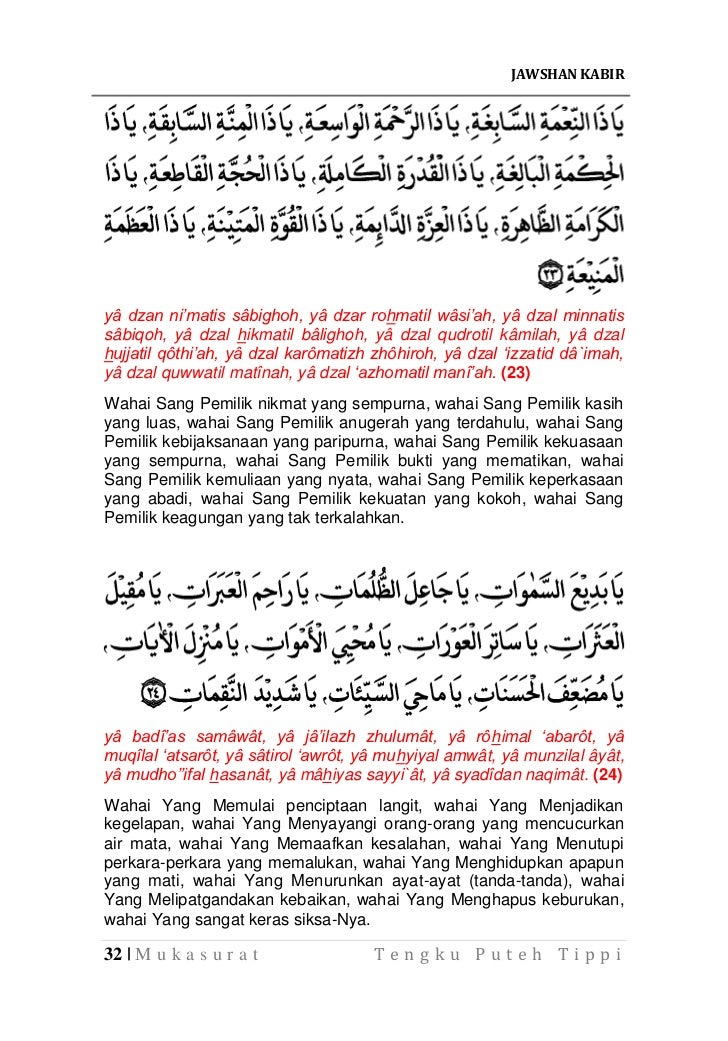 JAWSHAN KABIR
يَا ذَا النِّعْمَةِ السَّابِغَةِ، يَا ذَا الرَّحْمَةِ الْوَاسِعَةِ، يَا ذَا الْمِنَّةِ السَّابِقَةِ، يَا ذَا
الْحِكْمَةِ الْبَالِغَةِ، يَا ذَا الْقُدْرَةِ الْكَامِلَةِ، يَا ذَا الْحُجَّةِ الْقَاطِعَةِ، يَا ذَا
الْكَرَامَةِ الظَّاهِرَةِ، يَا ذَا الْعِزَّةِ الدَّائِمَةِ، يَا ذَا الْقُوَّةِ الْمَتِيْنَةِ، يَا ذَا الْعَظَمَةِ
الْمَنِيْعَةِ ﴿٢٣﴾
yâ dzan ni’matis sâbighoh, yâ dzar rohmatil wâsi’ah, yâ dzal minnatis
sâbiqoh, yâ dzal hikmatil bâlighoh, yâ dzal qudrotil kâmilah, yâ dzal
hujjatil qôthi’ah, yâ dzal karômatizh zhôhiroh, yâ dzal ‘izzatid dâ`imah,
yâ dzal quwwatil matînah, yâ dzal ‘azhomatil manî’ah. (23)
Wahai Sang Pemilik nikmat yang sempurna, wahai Sang Pemilik kasih
yang luas, wahai Sang Pemilik anugerah yang terdahulu, wahai Sang
Pemilik kebijaksanaan yang paripurna, wahai Sang Pemilik kekuasaan
yang sempurna, wahai Sang Pemilik bukti yang mematikan, wahai
Sang Pemilik kemuliaan yang nyata, wahai Sang Pemilik keperkasaan
yang abadi, wahai Sang Pemilik kekuatan yang kokoh, wahai Sang
Pemilik keagungan yang tak terkalahkan.
يَا بَدِيْعَ السَّمٰوَاتِ، يَا جَاعِلَ الظُّلُمَاتِ، يَا رَاحِمَ الْعَبَرَاتِ، يَا مُقِيْلَ
الْعَثَرَاتِ، يَا سَاتِرَ الْعَوْرَاتِ، يَا مُحْيِيَ الْأَمْوَاتِ، يَا مُنْزِلَ الْاٰيَاتِ،
يَا مُضَعِّفَ الْحَسَنَاتِ، يَا مَاحِيَ السَّيِّئَاتِ، يَا شَدِيْدَ النَّقِمَاتِ ﴿٢٤﴾
yâ badî’as samâwât, yâ jâ’ilazh zhulumât, yâ rôhimal ‘abarôt, yâ
muqîlal ‘atsarôt, yâ sâtirol ‘awrôt, yâ muhyiyal amwât, yâ munzilal âyât,
yâ mudho”ifal hasanât, yâ mâhiyas sayyi`ât, yâ syadîdan naqimât. (24)
Wahai Yang Memulai penciptaan langit, wahai Yang Menjadikan
kegelapan, wahai Yang Menyayangi orang-orang yang mencucurkan
air mata, wahai Yang Memaafkan kesalahan, wahai Yang Menutupi
perkara-perkara yang memalukan, wahai Yang Menghidupkan apapun
yang mati, wahai Yang Menurunkan ayat-ayat (tanda-tanda), wahai
Yang Melipatgandakan kebaikan, wahai Yang Menghapus keburukan,
wahai Yang sangat keras siksa-Nya.
32 | Mukasurat Tengku Puteh Tippi